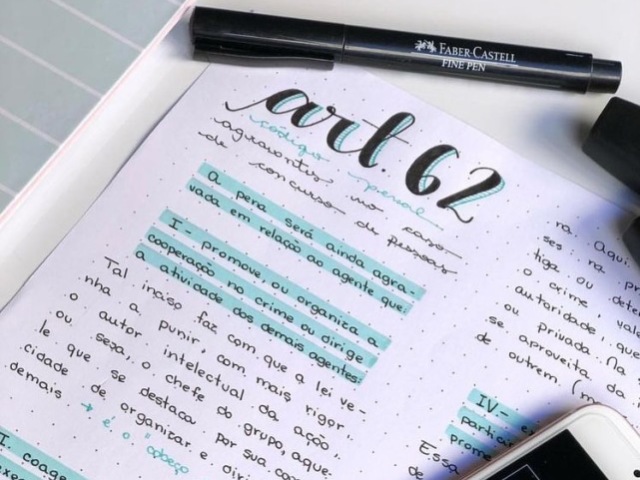 FABER-CASTELL
FINE PEN
art. 62
código penal
agravantes no caso
de concurso de pessoas
A pena será ainda agra-
vada em relação ao agente que:
I - promove, ou organiza a
cooperação no crime ou dirige
a atividade dos demais agentes:
Tal inciso faz com que a lei ve-
nha a punir, com mais rigor
o autor intelectual da ação,
ou seja, o chefe do grupo, aque-
le que se destaca por sua capa-
cidade de organizar e diri
demais → é o "cabeça
I. coage
ra. Aqui
ses: na pr
tiga ou deter
o crime, val
autoridade, que
ou privada. Na
se aproveita da
de outrem (m
IV - ex
partici
prome
Essa
de